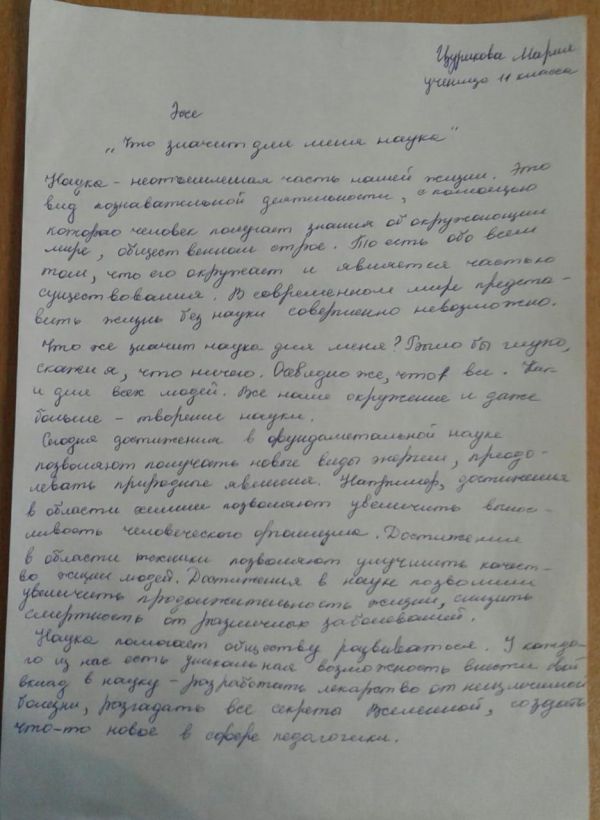 Цурикова Мария
ученица 11 класса
Эссе
„Что значит для меня наука"
Наука - неотъемлемая часть нашей жизни. Это
вид познавательной деятельности, с помощью
которого человек получает знания об окружающем
мире, общественном строе. То есть обо всем
том, что его окружает и является частью
существования. В современном мире предста-
вить жизнь без науки совершенно невозможно.
Что же значит наука для меня? Было бы глупо,
скажи я, что ничего. Очевидно же, что все. Как
и для всех людей. Все наше окружение и даже
больше - творение науки.
Сегодня достижения в фундаметальной науке
позволяют получать новые виды энергии, преодо-
левать природные явления. Например, достижения
в области химии позволяют увеличить вынос-
ливость человеческого организма. Достижения
в области техники позволяют улучшить качест-
во жизни людей. Достижения в науке позволили
увеличить продолжительность жизни, снизить
смертность от различных заболеваний.
Наука помогает обществу развиваться. У каждо-
го из нас есть уникальная возможность внести свой
вклад в науку - разработать лекарство от неизлечимой
болезни, разгадать все секреты Вселенной, создать
что-то новое в сфере педагогики.